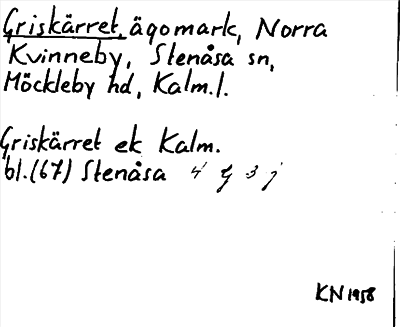 Griskärret, ägomark, Norra
Kvinneby, Stenåsa sn,
Möckleby hd, Kalm.l.
Griskärret ek Kalm.
bl.(67) Stenåsa 4 g 3 j
KN 1958